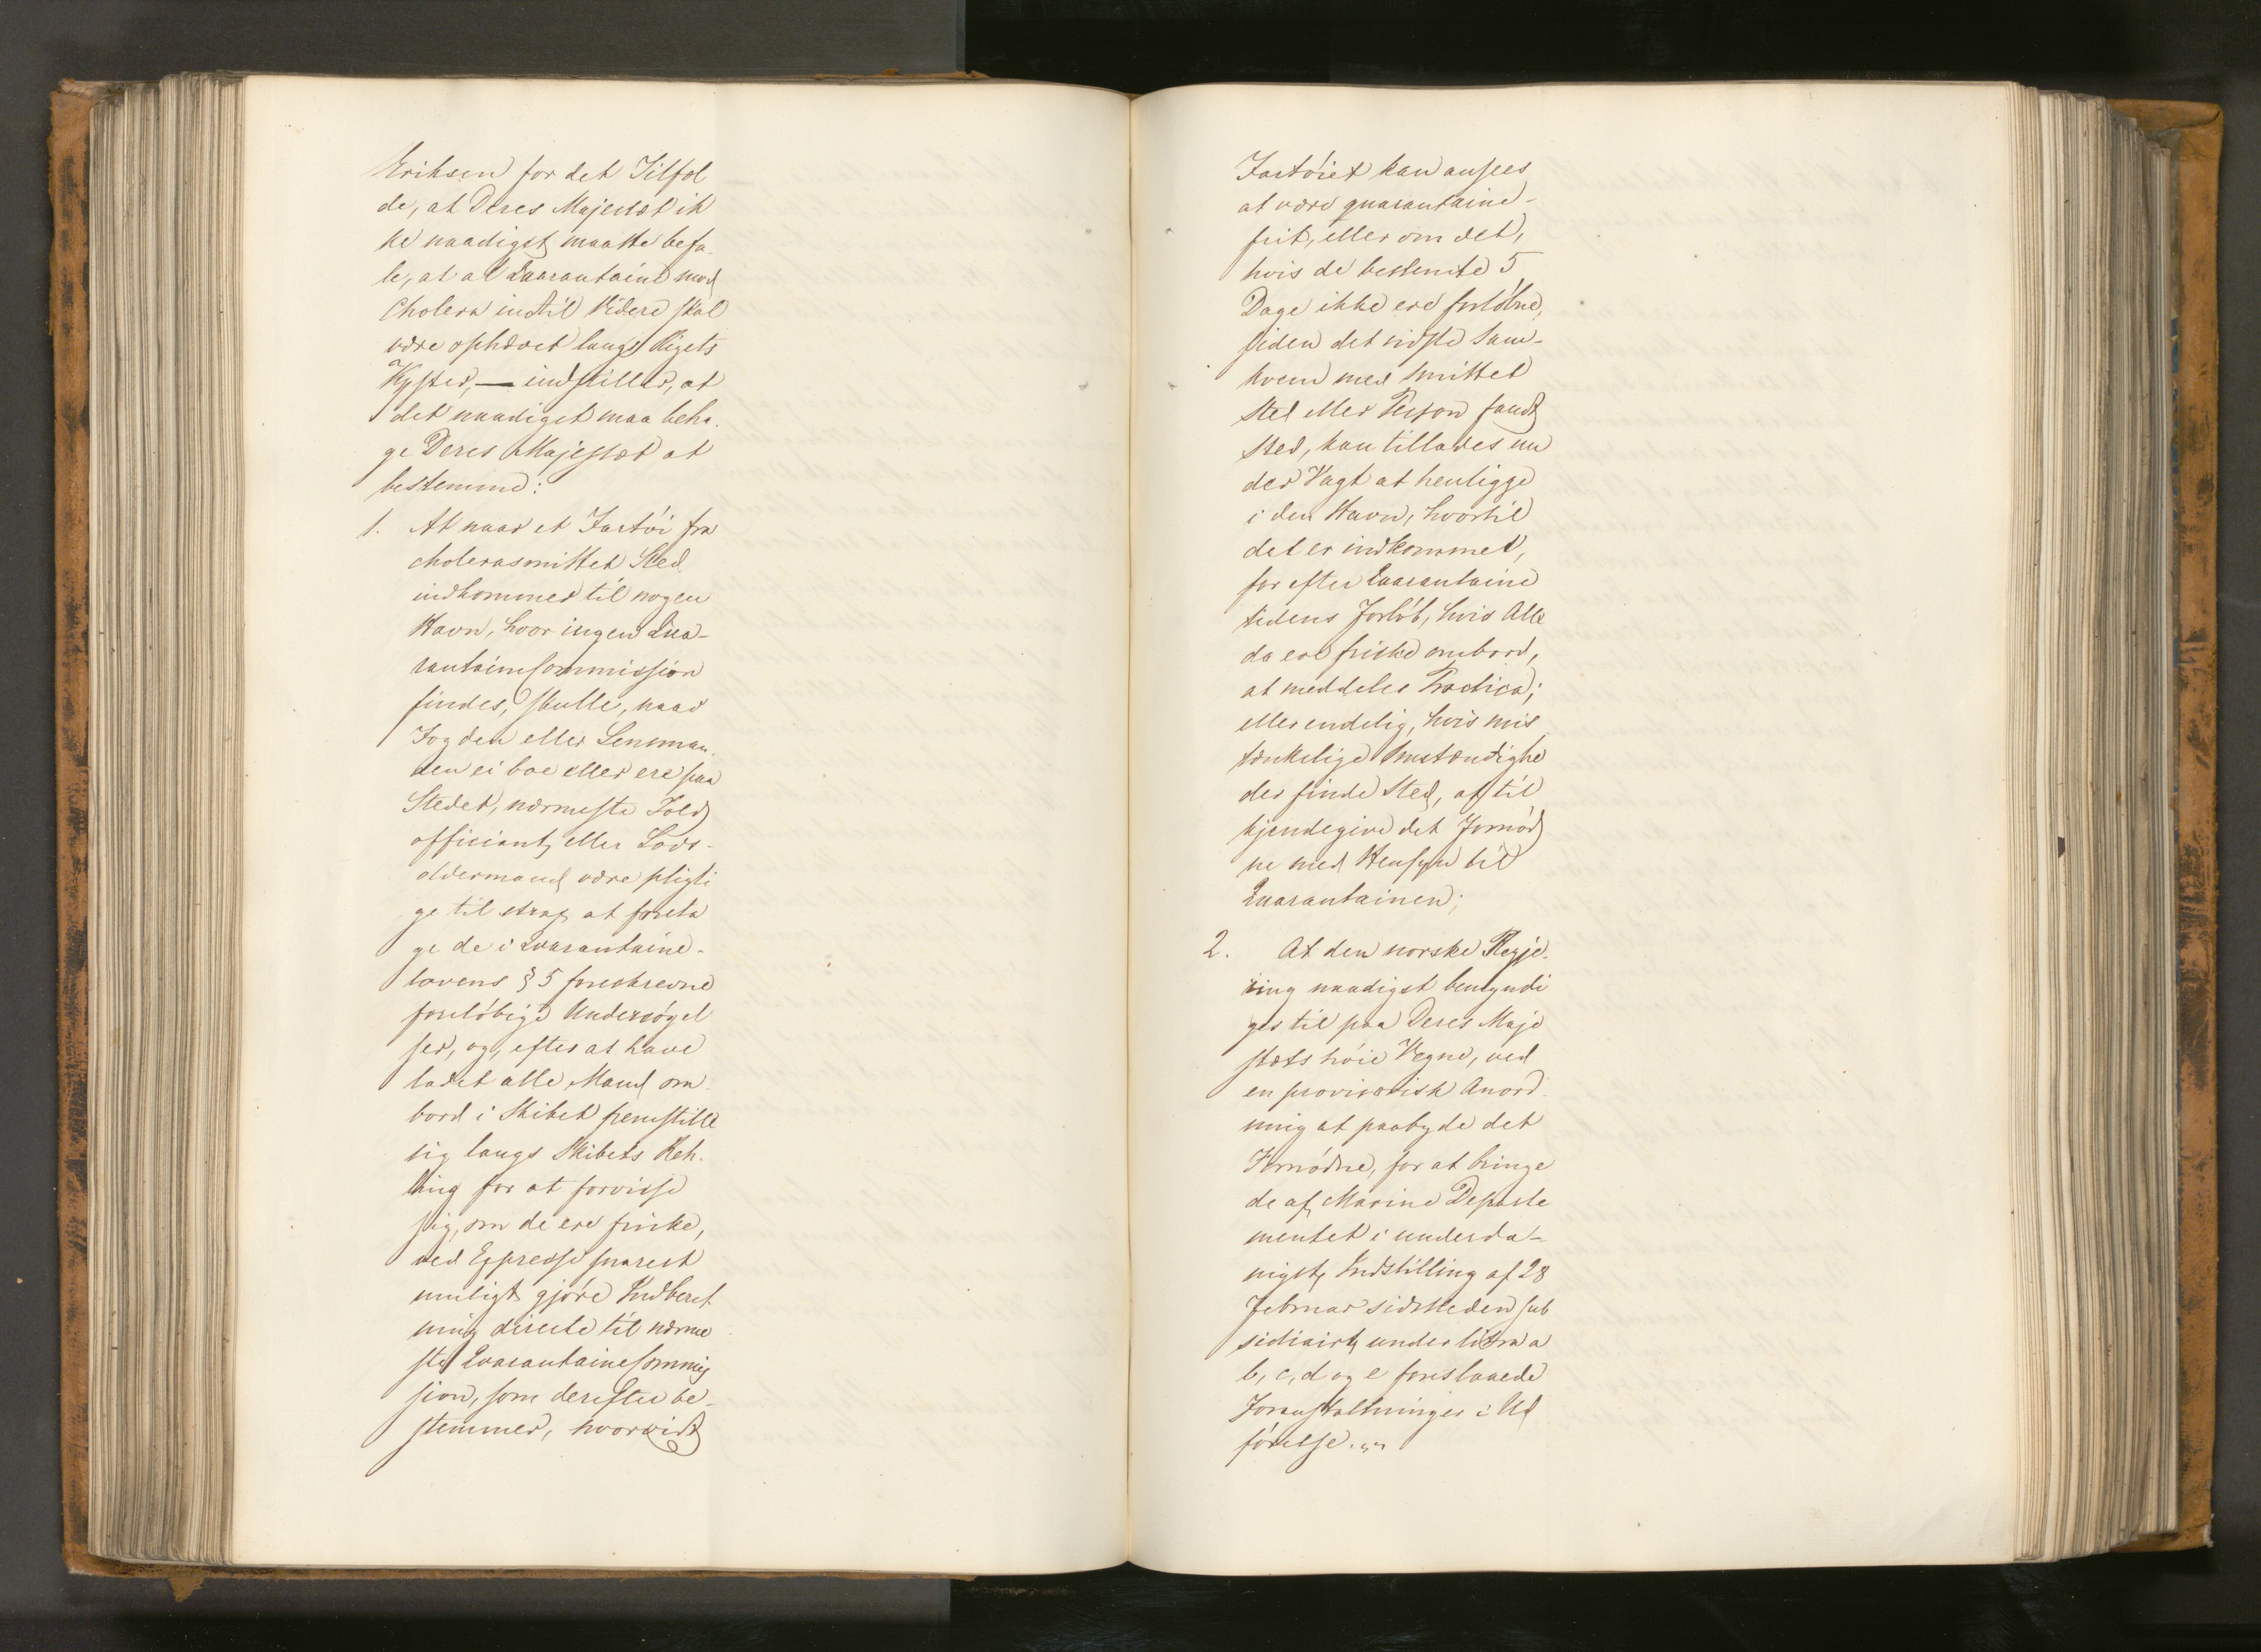 Eriksen for det Tilfæl
de, at Deres Majestæt ik
ke naadigst maatte befa
le, at al Quarantaine mod
Cholera indtil Videre skal
være ophævet langs Rigets
Kyster, — indstiller, at
det naadigst maa beha.
ge Deres Majestæt at
bestemme:
1. At naar et Fartöi fra
cholerasmittet Sted
indkommer til nogen
Havn, hvor ingen Qua-
rantaineCommission
findes, skulle, naar
Fogden eller Lensman.
den ei boe eller ere paa
Stedet, nærmeste Told
officiant eller Lods-
oldermand være pligti
ge til strax at foreta
ge de i Quarantaine-
lovens § 5 foreskrevne
forelöbige Undersögel
ser, og, efter at have
ladet alle Mand om
bord i Skibet fremstille
sig langs Skibets Reh.
ling for at forvisse
sig, om de ere friske,
ved Expresse snarest
muligt gjöre Indberet
ning directe til nærme
ste QuarantaineCommis
sion, som derefter be-
stemmer, hvorvidt
Fartöiet kan ansees
at være quarantaine-
frit, eller om det,
hvis de bestemte 5
Dage ikke ere forlöbne,
siden det sidste Sam-
kvem med smittet
Sted eller Person fandt
Sted, kan tillades un
der Vagt at henligge
i den Havn, hvortil
det er indkommet,
for efter Quarantaine
tidens Forlöb, hvis Alle
da ere friske ombord,
at meddeles Practica;
eller endelig, hvis mis
tænkelige Omstændighe
der finde Sted, at til
kjendegive det Fornöd
ne med Hensyn til
Quarantainen;
2. At den norske Regje.
ring naadigst bemyndi
ges til paa Deres Maje
stæts höie Vegne, ved
en provisorisk Anord
ning at paabyde det
Fornödne, for at bringe
de af Marine Departe
mentet i underda-
nigst Indstilling af 28
Februar sidstleden sub
sidiairt under litra a
b, c, d og e foreslaaede
Foranstaltninger i Ud
förelse.